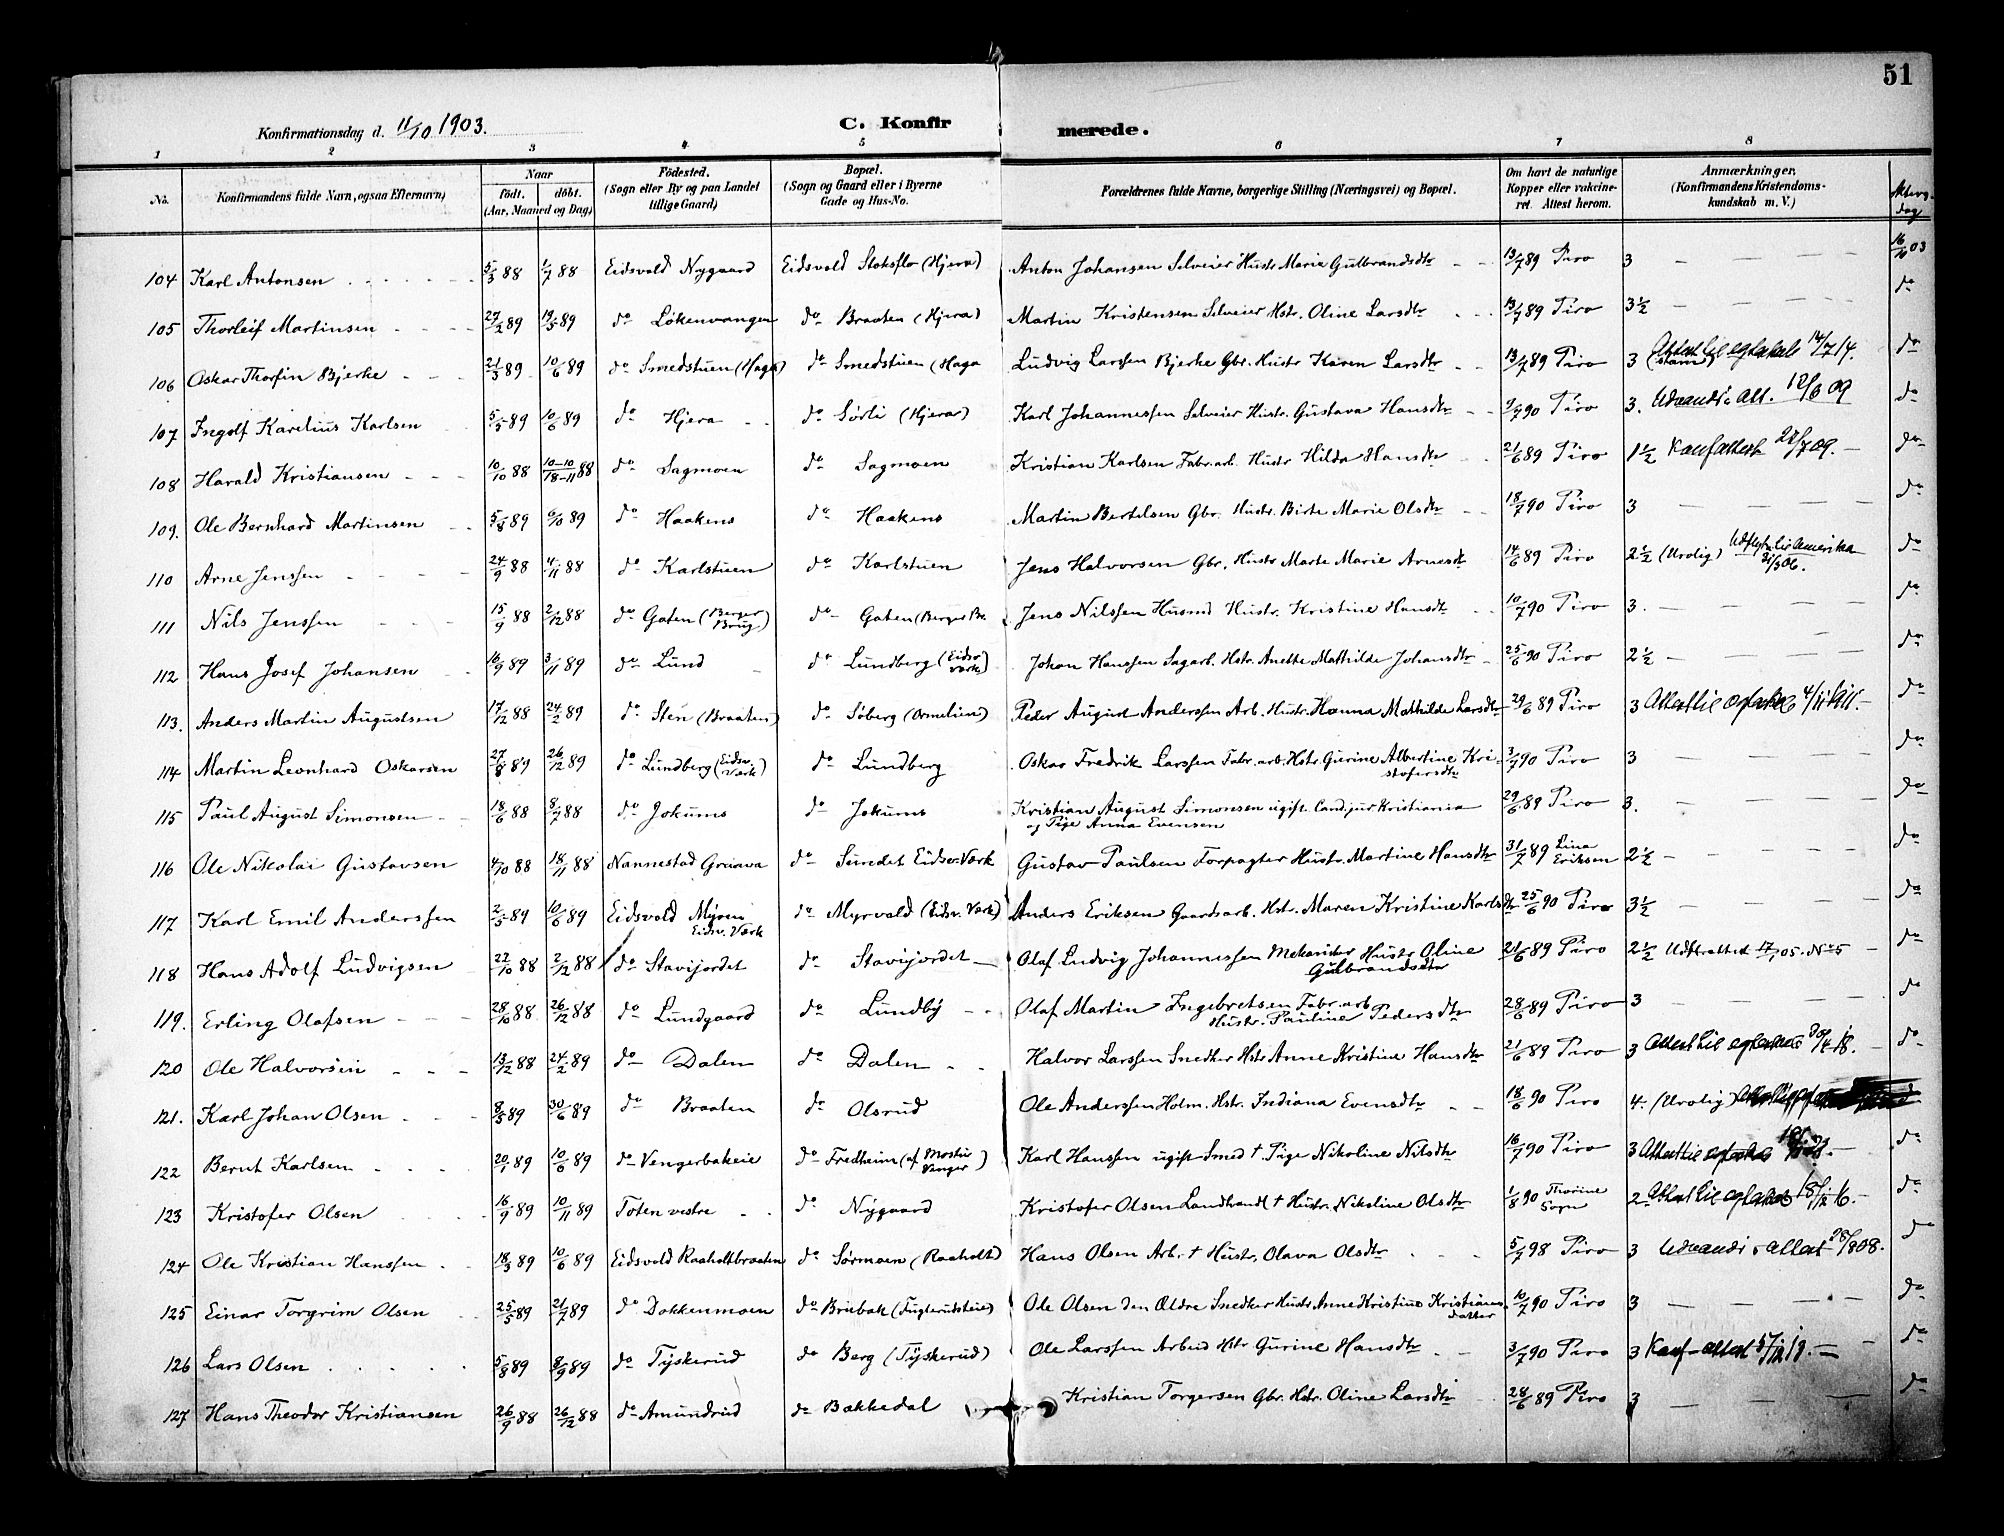 51
Konfirmationsdag d. 11/10 1903. C. Konfir merede.
1 2 3 4 5 6 7 8
No. Konfirmandens fulde Navn, ogsaa Efternavn) Naar födt. döbt. (Aar, Maaned og Dag) Födested. (Sogn eller By og paa Landet tillige Gaard) Bopæl. (Sogn og Gaard eller i Byerne Gade og Hus-No. Forældrenes fulde Navne, borgerlige Stilling (Næringsvei) og Bopæl. Om havt de naturlige Kopper eller vakcineret. Attest herom. Anmærkninger. (Konfirmandens Kristendomskundskab m. V.) dag
104 Karl Antonsen 5/3 88 1/7 88 Eidsvold Nygaard Eidsvold Stoksflo (Hjera) Anton Johansen Selveier Hustr Marie Gulbrandsdtr 13/7 89 Piro 3 16/10 03
105 Thorleif Martinsen 27/2 89 19/5 89 do Lökenvangen do Braaten (Hjera) Martin Kristensen Selveier Hstr. Oline Larsdtr 13/7 89 Piro 3½ do
106 Oskar Thorfin Bjerke 21/3 89 10/6 89 do Smedstuen (Haga) do Smedstuen (Haga Ludvig Larssen Bjerke Gbr. Hustr Karen Larsdtr 13/7 89 Piro 3 Attest til egtesk 14/7 14. do
107 Ingolf Karelius Karlsen 5/3 89 10/6 89 do Hjera do Sörli (Hjera) Karl Johannessen Selveier Hustr. Gustava Hansdtr 9/7 90 Piro 3. Udvandr. Att. 12/6 09 do
108 Harald Kristiansen 10/10 88 10-10/18-11 88 do Sagmoen do Sagmoen Kristian Karlsen Fabr.arb. Hustr Hilda Hansdtr 21/6 89 Piro 1½ Konfattest 28/7 09. do
109. Ole Bernhard Martinsen 5/8 89 6/10 89 do Haakens do Haakens Martin Bertelsen Gbr. Hustr. Birte Marie Olsdtr 18/7 90 Piro 3 do
110 Arne Jenssen 24/9 88 4/11 88 do Karlstuen do Karlstuen Jens Halvorsen Gbr. Hustr Marte Marie Arnesdtr 14/6 89 Piro 2½ (Urolig) Udflyt. til Amerika 31/3 06. do
111 Nils Jenssen 15/9 88 2/12 88 do Gaten (Berger Brug) do Gaten (Berger Br. Jens Nilssen Husmd Hustr. Kristine Hansdtr 10/7 90 Piro 3. do
112 Hans Josef Johansen 16/9 89 3/11 89 do Lund do Lundberg (Eidsv Værk) Johan Hanssen Sagarb. Hstr. Anette Mathilde Johansdtr 25/6 90 Piro 2½ do
113. Anders Martin Augustsen 17/12 88 24/2 89 do Sten (Braaten) do Söberg (Ormelien) Peder August Anderssen Arb. Hustr. Hanna Mathilde Larsdtr 29/6 89 Piro 3 Attest til egtesk 4/11 1911. do
114 Martin Leonhard Oskarsen 27/8 89 26/12 89 do Lundberg (Eidsv. Værk) do Lundberg Oskar Fredrik Larssen Fabr. arb. Hstr. Gurine Albertine Kristofersdtr 3/7 90 Piro 3 do
115 Paul August Simonsen 18/6 88 8/7 88 do Jokums do Jokums Kristian August Simonsen ugift Cand. jur Kristiania og Pige Anna Evensen 29/6 89 Piro 3. do
116 Ole Nikolai Gustavsen 4/10 88 18/11 88 Nannestad Gruava do Sundet Eidsv. Værk Gustav Paulsen Forpagter Hustr. Martine Hansdtr 31/7 89 Lina Eriksen 2½ do
117 Karl Emil Anderssen 2/5 89 10/6 89 Eidsvold Myren Eidsv. Værk do Myrvold (Eidsv. Værk) Anders Eriksen Gaardsarb. Hstr. Maren Kristine Karlsdtr 25/6 90 Piro 3½ do
118 Hans Adolf Ludvigsen 22/10 88 2/12 88 do Stavijordet do Stavijordet Olaf Ludvig Johannessen Mekaniker Hustr Oline Gulbrandsdtr 21/6 89 Piro 2½ 05. No 5 do
119. Erling Olafsen 28/10 88 26/12 88 do Lundgaard do Lundby Olaf Martin Ingebretsen Fabr. arb. Hustr. Pauline Pedersdtr 28/6 89 Piro 3 do
120 Ole Halvorsen 13/12 88 24/2 89 do Dalen do Dalen Halvor Larssen Snedker Hstr Anne Kristine Hansdtr 21/6 89 Piro 3 Attest til egtesk 30/4 18. do
121. Karl Johan Olsen 8/5 89 30/6 89 do Braaten do Olsrud Ole Anderssen Holm. Hstr. Indiana Evensdtr 18/6 90 Piro 4. (Urolig) do
122 Bernt Karlsen 20/1 89 10/6 89 do Vengerbakeie do Fredheim (af Mostue Venger) Karl Hanssen ugift Smed † Pige Nikoline Nilsdtr 16/7 90 Piro 3 Attest til egtesk do
123 Kristofer Olsen 16/9 89 10/11 89 Toten vestre do Nygaard Kristofer Olsen Landhandl † Hustr. Nikoline Olsdtr 1/8 90 Thorine Sogn 2 Attest til egtesk 18/12 16. do
124 Ole Kristian Hanssen 18/3 89 10/6 89 Eidsvold Raaholtbraaten do Sørmoen (Raaholt) Hans Olsen Arb. † Hustr. Olava Olsdtr 5/7 98 Piro 3 Udvandr. attest 28/8 08. do
125 Einar Torgrim Olsen 25/5 89 21/7 89 do Dokkenmoen do Brubak (Fuglerudsteie) Ole Olsen den Ældre Snedker Hustr. Anne Kristine Kristiansdatter 10/7 90 Piro 3 do
126 Lars Olsen 5/8 89 8/9 89 do Tyskerud do Berg (Tyskerud) Ole Larssen Arbeid Hstr Gurine Hansdtr 3/7 90 Piro 3 Konf-attest 5/12 19. do
127 Hans Theodor Kristiansen 26/9 88 26/12 88 do Amundrud do Bakkedal Kristian Torgersen Gbr. Hstr. Oline Larsdtr 28/6 89 Piro 3 do